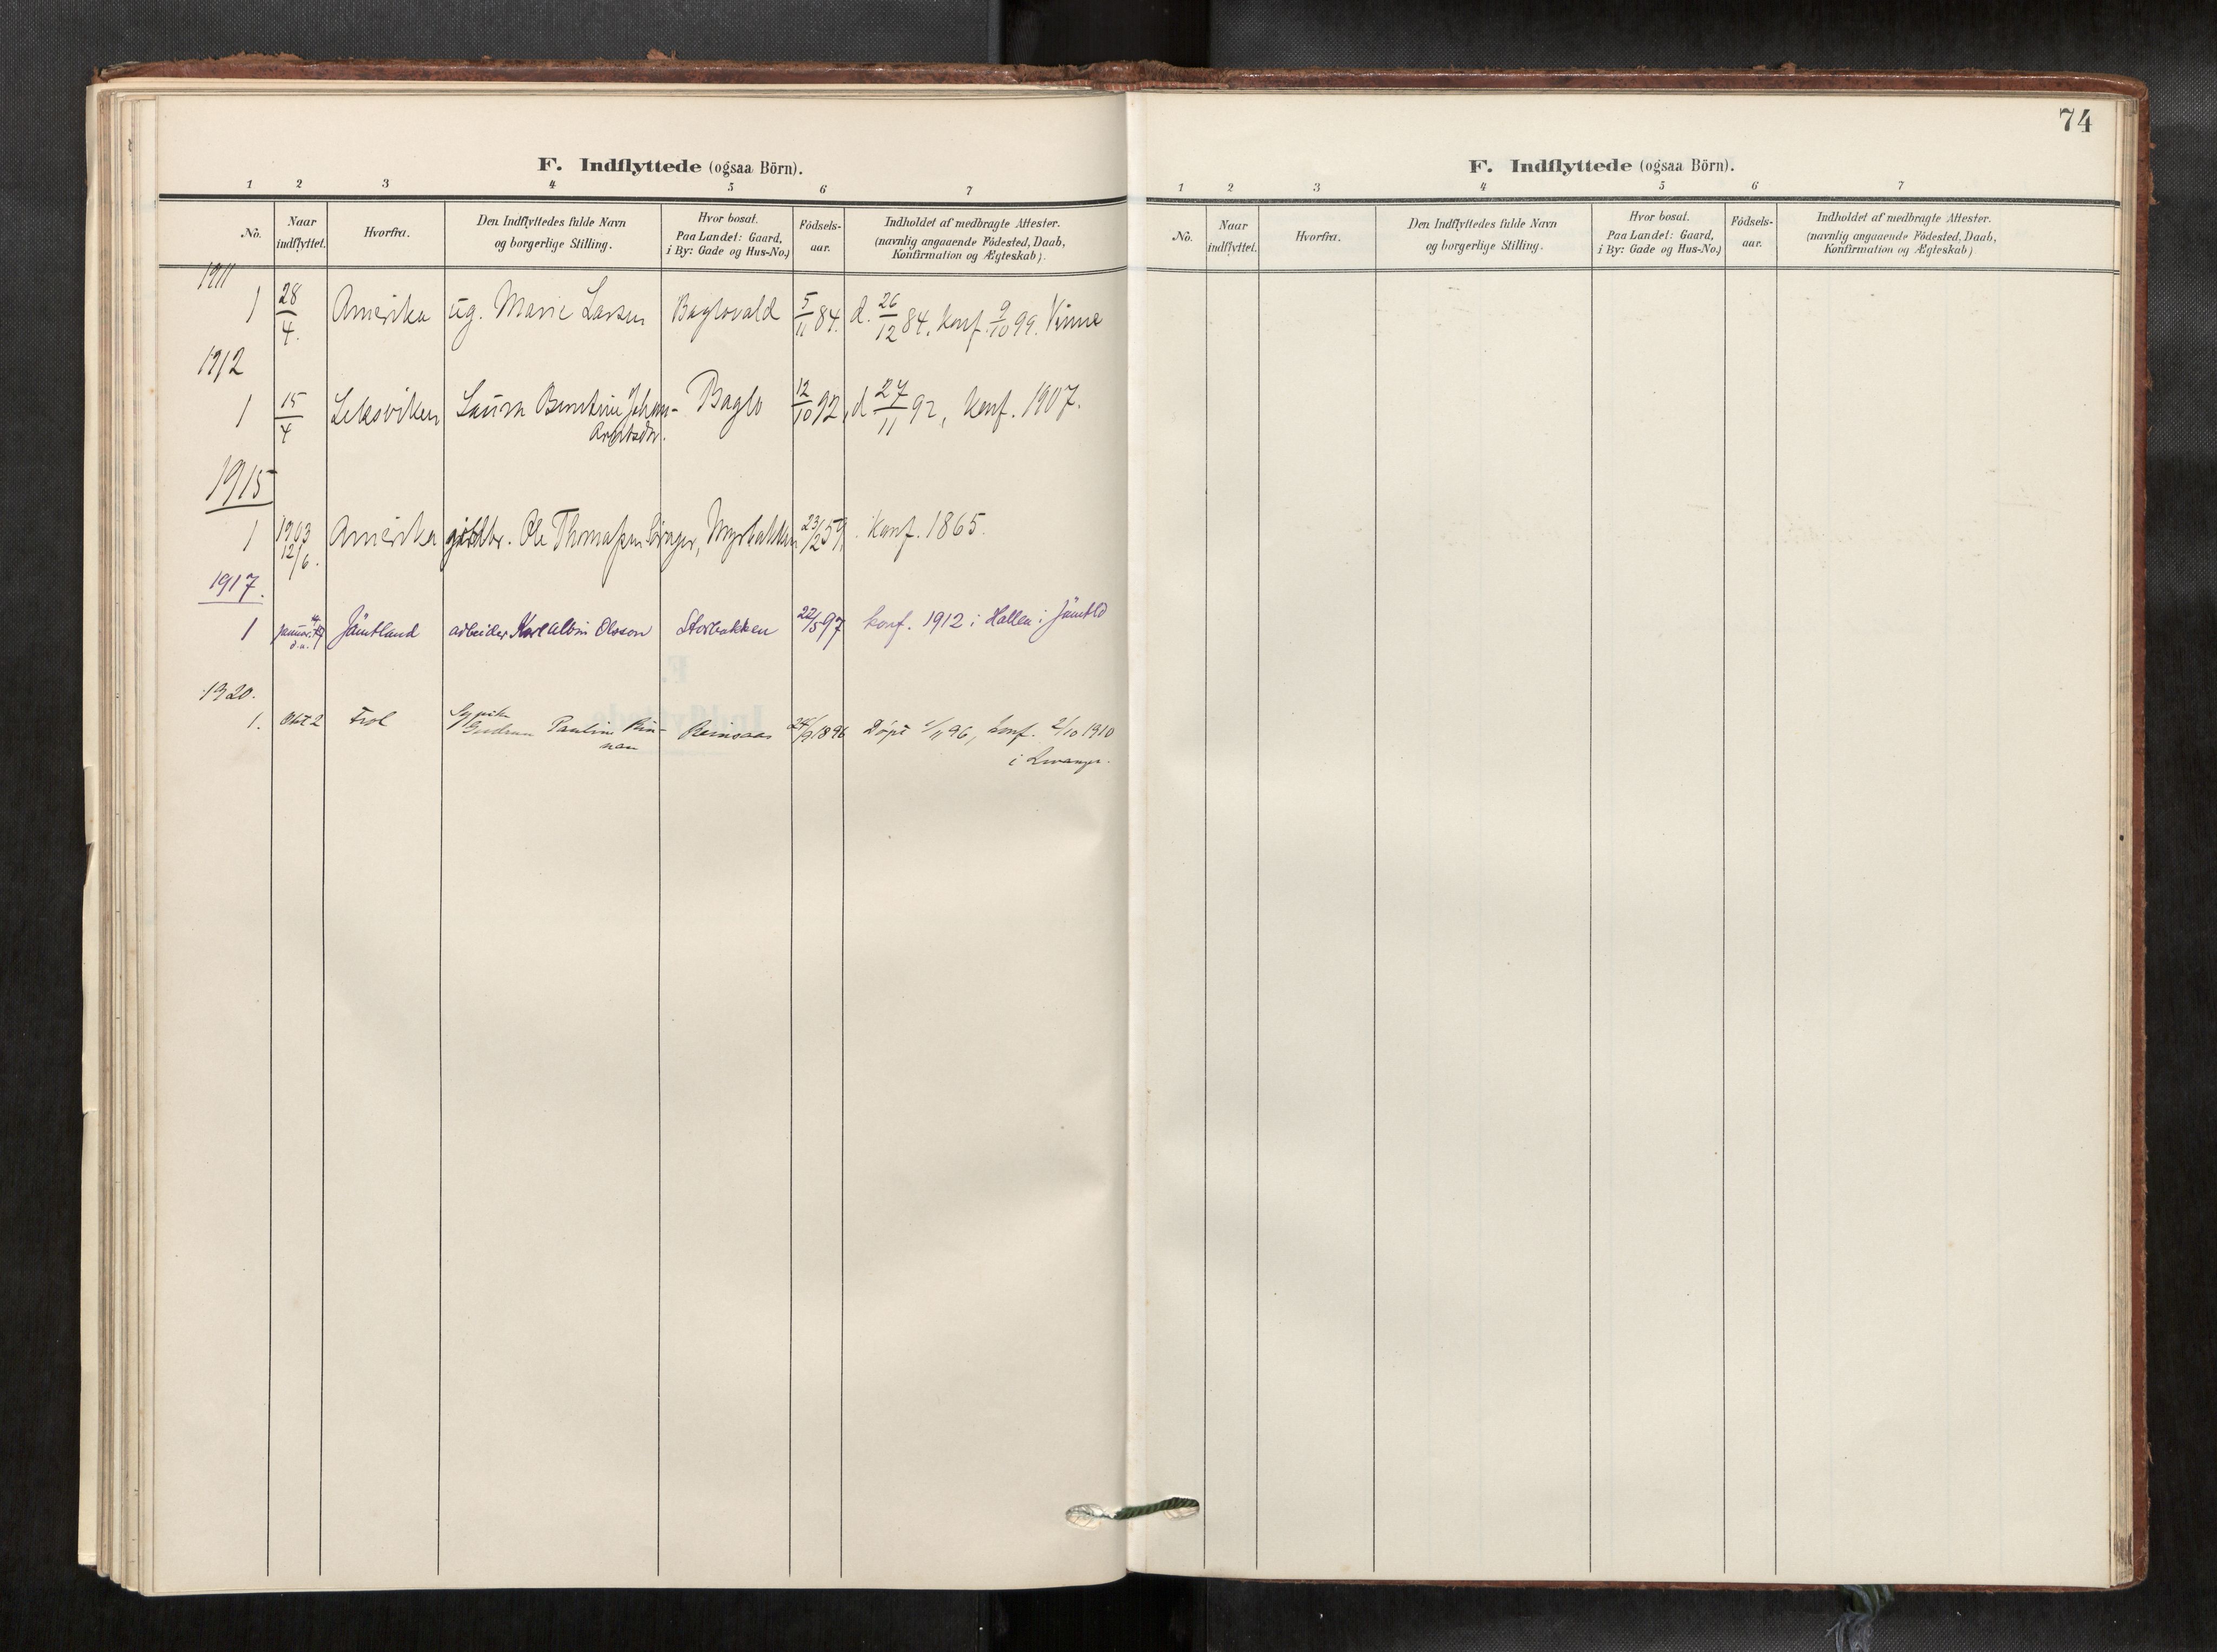 74
F. Indflyttede (ogsaa Börn).
1 2 3 4 5 6 7
No. Naar indflyttet. Hvorfra. Den Indflyttedes fulde Navn og borgerlige Stilling. Hvor bosat. Paa Landet: Gaard, i By: Gade og Hus-No.) Födsels-aar. Indholdet af medbragte Attester. (navnlig angaaende Födested, Daab, Konfirmation og Ægteskab).
1911
1 28/4. Amerika ug. Marie Larsen Baglovald 5/11 84. d. 26/12 84. konf. 9/10 99. Vinne
1912
1 15/4 Leksviken Laura Berntine Johan- Baglo 12/10 92, d 27/11 92, konf. 1907.
1915
1 1903 Amerika Ole Thomassen Myrbakken 23/2 59. konf. 1865.
12/6.
1917.
1 januar Jämtland arbeider Karl Alvin Olsson Storbakken 22/5 97 konf. 1912 i Hallen i Jämtld
1920.
1. Okt 2 Frol Gudrun Pauline Rin- Reinsaas 24/9 1896 Döpt 1/11 96, konf. 2/10 1910
nan i Levanger.
F. Indflyttede (ogsaa Börn).
1 2 3 4 5 6 7
No. Naar indflyttet. Hvorfra. Den Indflyttedes fulde Navn og borgerlige Stilling. Hvor bosat. Paa Landet: Gaard, i By: Gade og Hus-No.) Födsels-aar. Indholdet af medbragte Attester. (navnlig angaaende Födested, Daab, Konfirmation og Ægteskab)